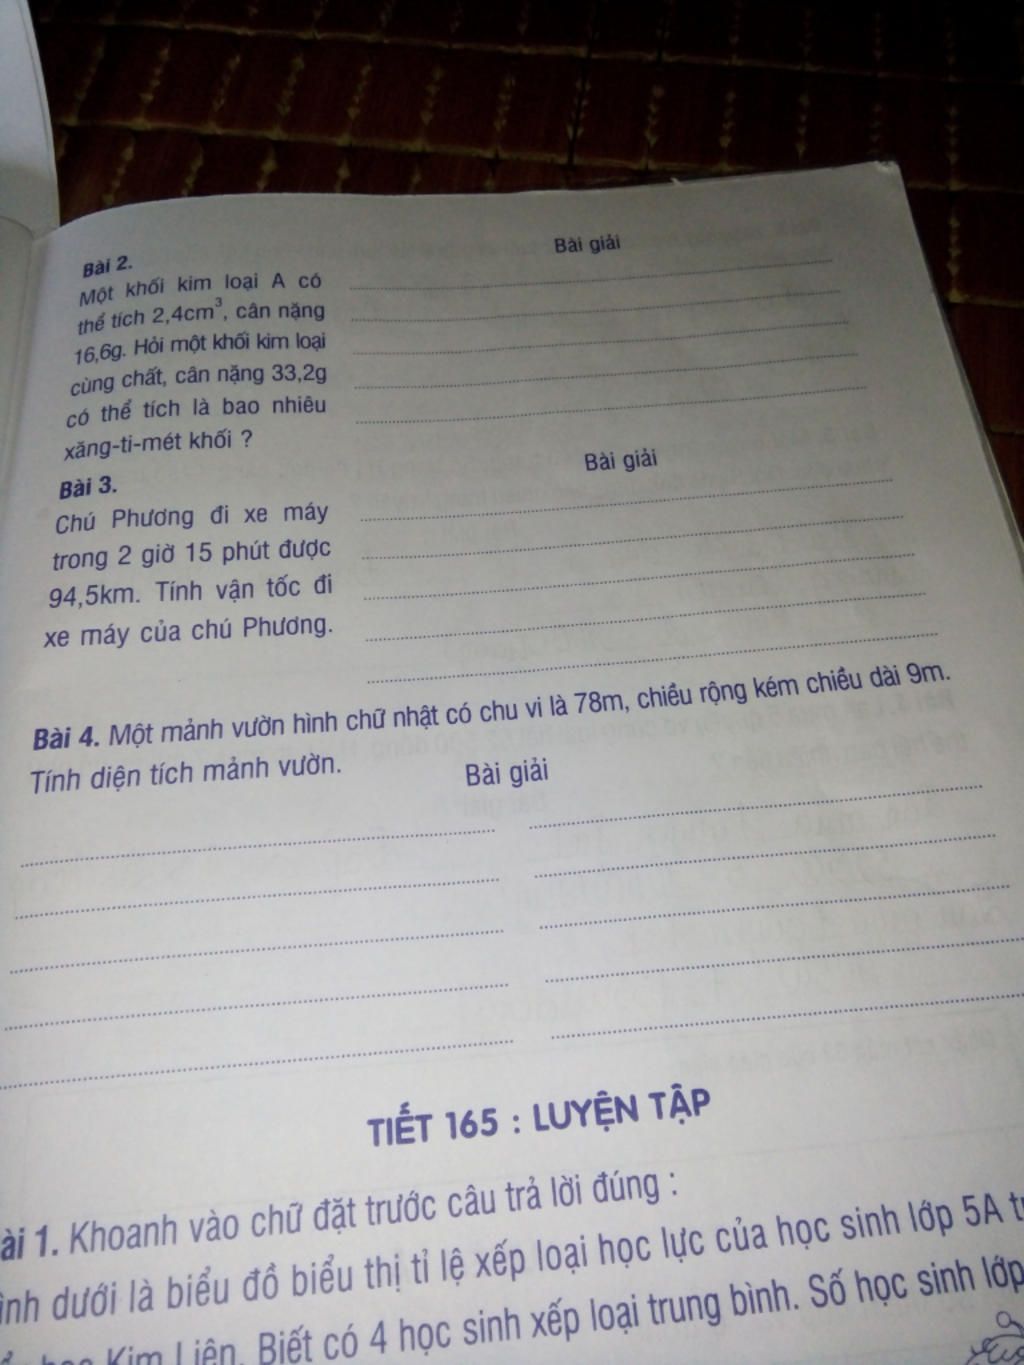 Bài 2.
Một khối kim loại A có
thể tích 2,4cm³, cân nặng
16,6g. Hỏi một khối kim loại
cùng chất, cân nặng 33,2g
có thể tích là bao nhiêu
xăng-ti-mét khối ?
Bài giải
Bài 3.
Chú Phương đi xe máy
trong 2 giờ 15 phút được
94,5km. Tính vận tốc đi
xe máy của chú Phương.
Bài giải
Bài 4. Một mảnh vườn hình chữ nhật có chu vi là 78m, chiều rộng kém chiều dài 9m.
Tính diện tích mảnh vườn.
Bài giải
TIẾT 165 : LUYỆN TẬP
ài 1. Khoanh vào chữ đặt trước câu trả lời đúng :
ình dưới là biểu đồ biểu thị tỉ lệ xếp loại học lực của học sinh lớp 5A
Kim Liên. Biết có 4 học sinh xếp loại trung bình. Số học sinh lớp